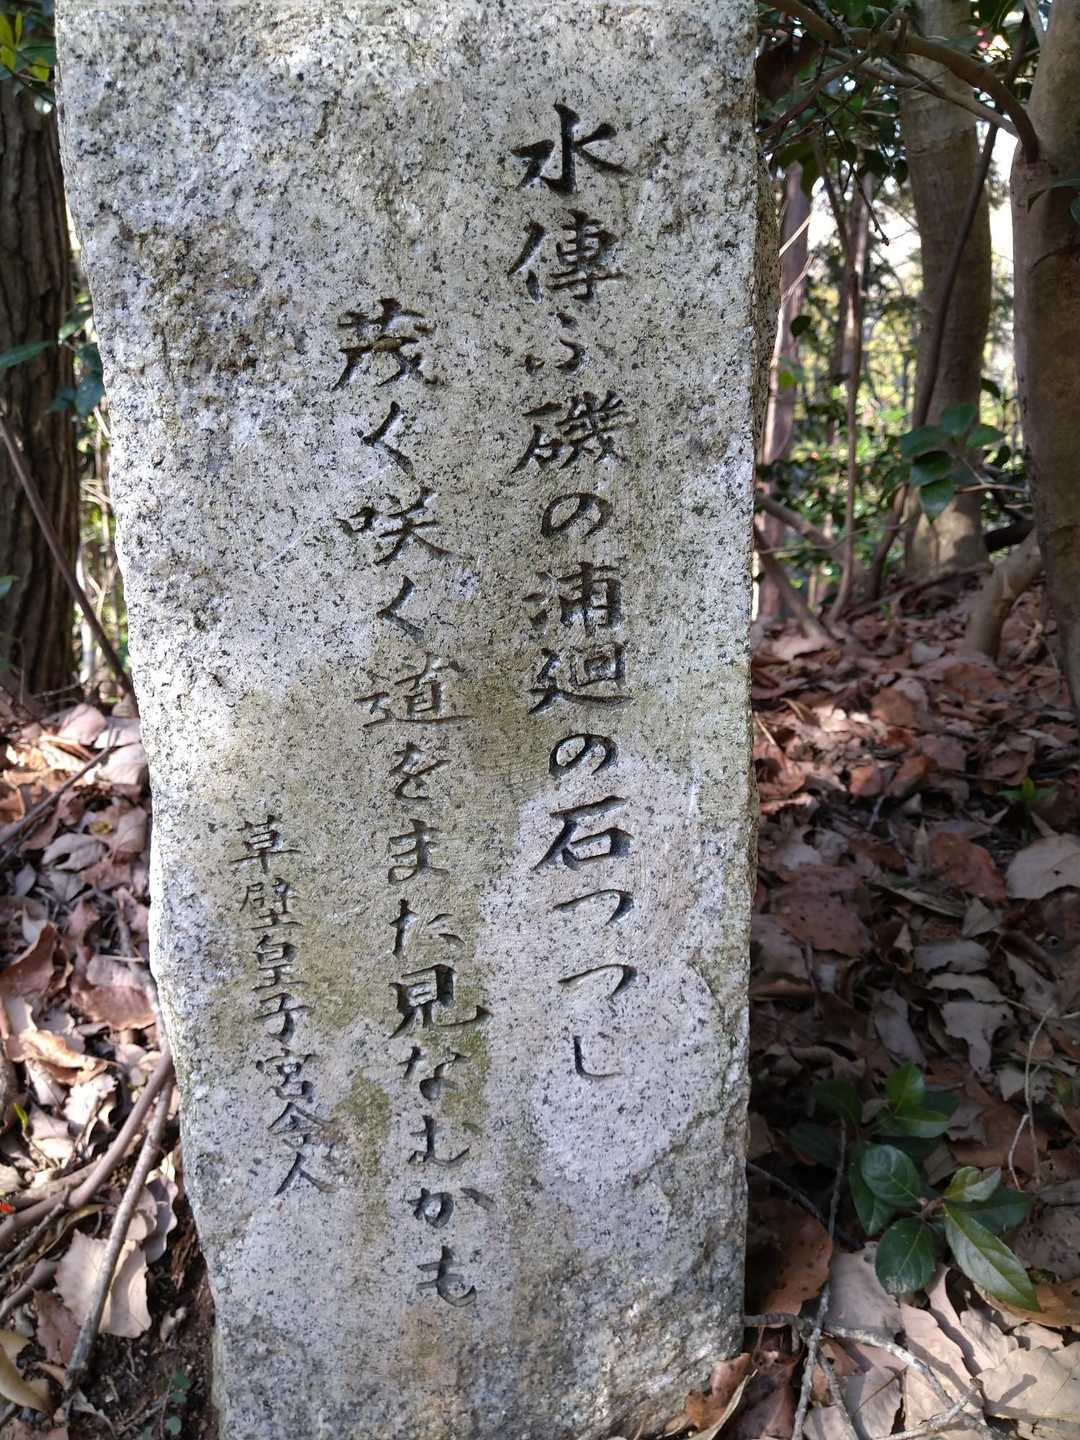 水傳ふ磯の浦廻の石つつじ
茂く咲く道をまた見なむかも
草壁皇子宮舎人